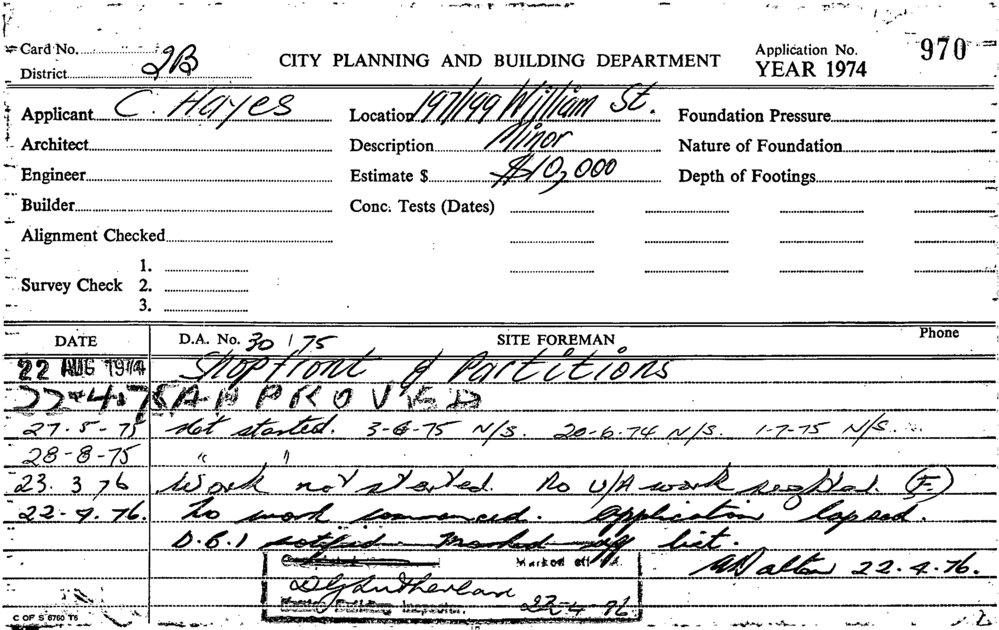 Card No. CITY PLANNING AND BUILDING DEPARTMENT Application No. 970
District 2B YEAR 1974
Applicant C. Hayes Location 197/199 William St. Foundation Pressure
Architect Description Minor Nature of Foundation
Engineer Estimate $ $10,000 Depth of Footings
Builder Conc. Tests (Dates)
Alignment Checked
1.
Survey Check 2.
3.
DATE D.A. No. 30/75 SITE FOREMAN Phone
22 AUG 1974 Shopfront & Partitions
22-4-75 APPROVED
27-5-75 Not started. 3-6-75 N/S. 20-6-74 N/S. 1-7-75 N/S.
28-8-75 " "
23.3.76 Work not started. No U/A work (F.)
22-4.76. No work commenced. Application lapsed.
D.B.I notified. Marked off list.
Marked off
22.4.76.
D Sutherland
Inspector. 22-4-76
C OF S 6760 T6